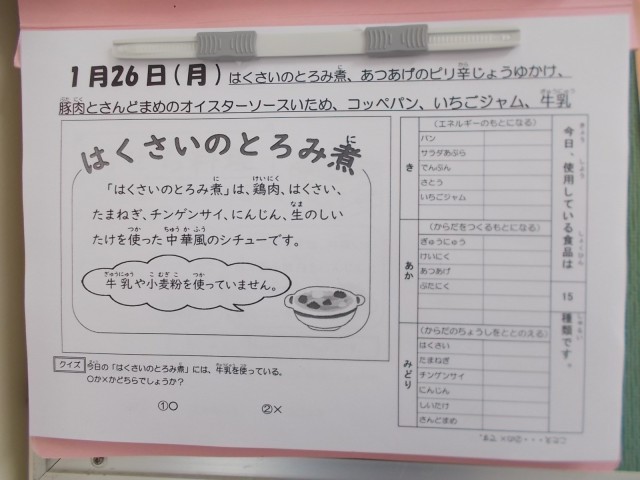 1月26日(月) はくさいのとろみ煮、あつあげのピリ辛じょうゆかけ、
豚肉とさんどまめのオイスターソースいため、コッペパン、いちごジャム、牛乳
はくさいのとろみ煮
「はくさいのとろみ煮」は、鶏肉、はくさい、
たまねぎ、チンゲンサイ、にんじん、生のしい
たけを使った中華風のシチューです。
牛乳や小麦粉を使っていません。
クイズ
今日の「はくさいのとろみ煮」には、牛乳を使っている。
○か×かどちらでしょうか?
①○ ②×
き
(エネルギーのもとになる)
パン
サラダあぶら
でんぷん
さとう
いちごジャム
あか
(からだをつくるもとになる)
ぎゅうにゅう
けいにく
あつあげ
ぶたにく
みどり
(からだのちょうしをととのえる)
はくさい
たまねぎ
チンゲンサイ
にんじん
しいたけ
さんどまめ
今日、使用している食品は
15
種類です。